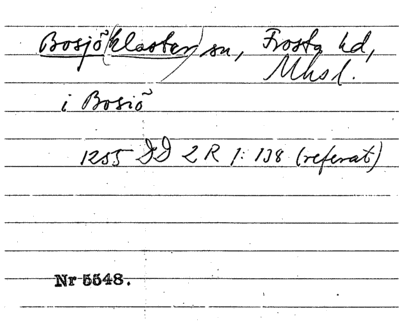 Bosjö(kloster) sn, Frosta hd,
Mhsl.
i Bosiö
1255 DD 2 R 1: 138 (referat)
Nr 5548.